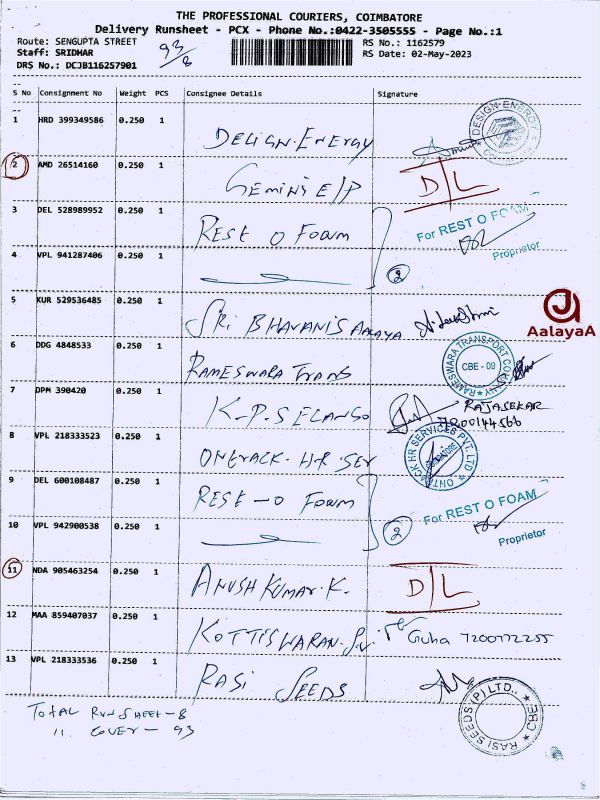 THE PROFESSIONAL COURIERS, COIMBATORE
Delivery Runsheet - PCX - Phone No.:0422-3505555 - Page No.:1
Route: SENGUPTA STREET
Staff: SRIDHAR
DRS No.: DCJB116257901
93/8
RS No.: 1162579
RS Date: 02-May-2023
S No Consignment No Weight PCS Consignee Details Signature
1 HRD 399349586 0.250 1 DESIGN. ENERGY
DESIGN ENERGY
2 AMD 26514160 0.250 1 GEMINI E/P D/L
3 DEL 528989952 0.250 1 REST O FOAM
For REST O FOAM
Proprietor
4 VPL 941287406 0.250 1
2
5 KUR 529536485 0.250 1 SRI BHAVANIS AALAYA
AalayaA
6 DDG 4848533 0.250 1 RAMESWARA TRANS
RAMESWARA TRANSPORT COMPANY
CBE - 09
7 DPM 390420 0.250 1 K.P. SELANGO RAJASEKAR
7200144566
8 VPL 218333523 0.250 1 ONTRACK. HR. SER
ONTRACK HR SERVICES PVT. LTD
COIMBATORE
9 DEL 600108487 0.250 1 REST - O FOAM
For REST O FOAM
Proprietor
10 VPL 942900538 0.250 1
2
11 NDA 905463254 0.250 1 ANUSH KUMAR. K. D/L
12 MAA 859407037 0.250 1 KOTTISWARAN. Guha 7200772255
13 VPL 218333536 0.250 1 RASI SEEDS
RASI SEEDS (P) LTD., CBE
TOTAL RUN SHEET - 8
11 COVER - 93